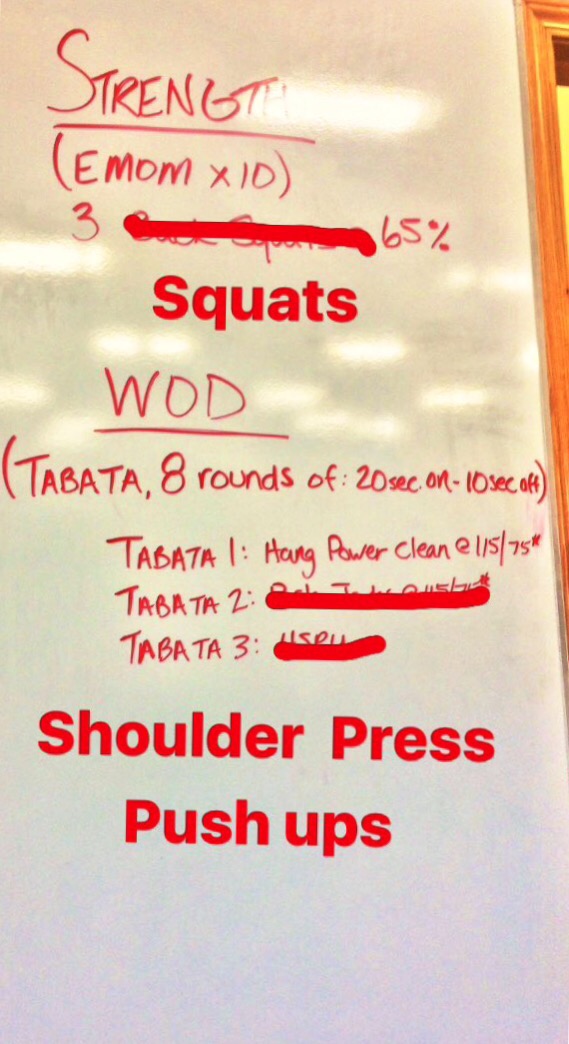 STRENGTH
(EMOM x 10)
3 65%
Squats
WOD
(TABATA, 8 rounds of: 20sec. on - 10sec off)
TABATA 1: Hang Power Clean @ 115/75#
TABATA 2:
TABATA 3: HSPU
Shoulder Press
Push ups